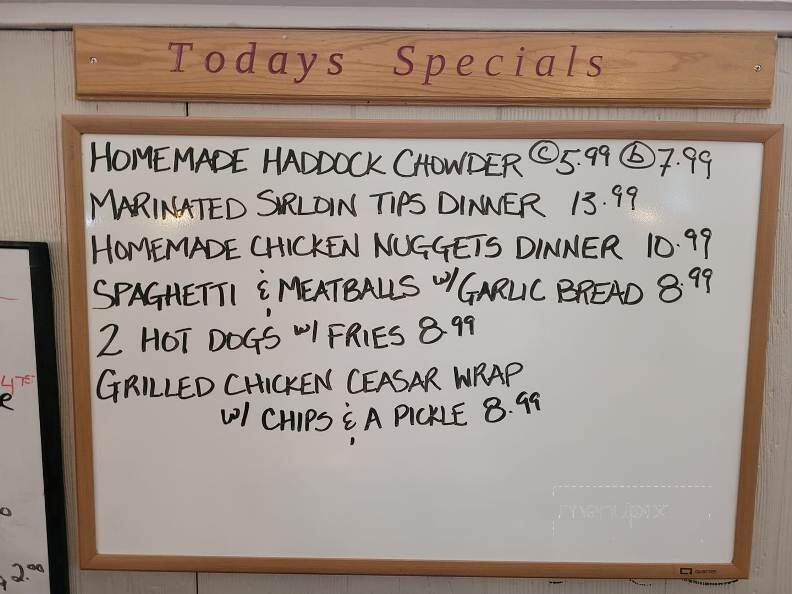 Todays Specials
HOMEMADE HADDOCK CHOWDER ⓒ5.99 ⓑ7.99
MARINATED SIRLOIN TIPS DINNER 13.99
HOMEMADE CHICKEN NUGGETS DINNER 10.99
SPAGHETTI & MEATBALLS w/ GARLIC BREAD 8.99
2 HOT DOGS w/ FRIES 8.99
GRILLED CHICKEN CEASAR WRAP
w/ CHIPS & A PICKLE 8.99
menupix
2.00